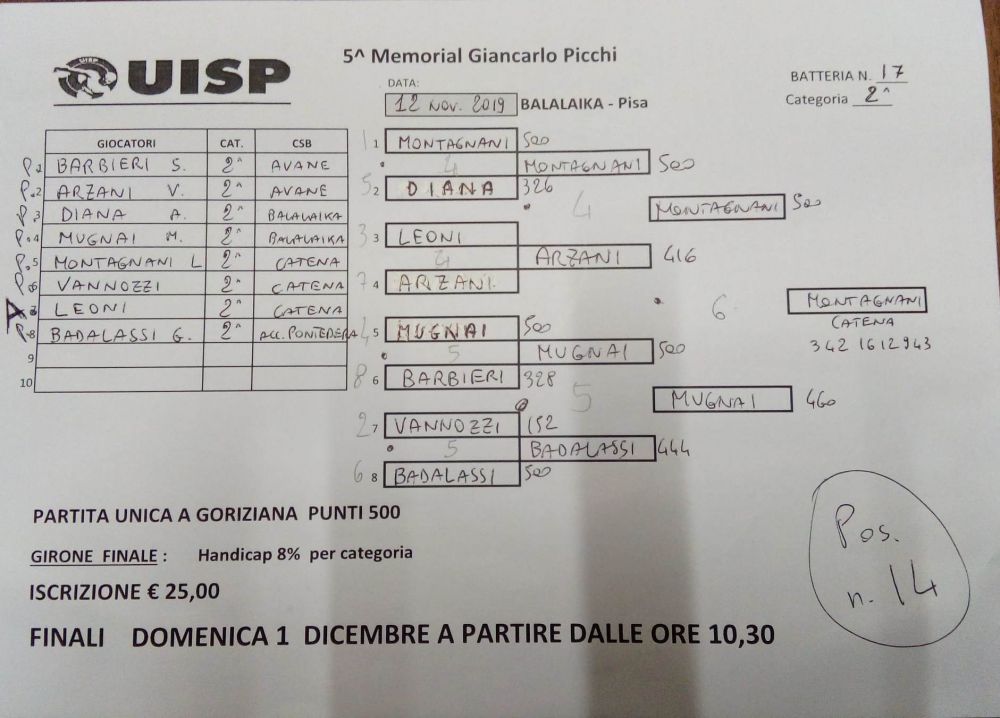 UISP
UISP
5^ Memorial Giancarlo Picchi
DATA:
12 NOV. 2019 BALALAIKA - Pisa
BATTERIA N. 17
Categoria 2^
GIOCATORI CAT. CSB
P.1 BARBIERI S. 2^ AVANE
P.2 ARZANI V. 2^ AVANE
P.3 DIANA A. 2^ BALALAIKA
P.4 MUGNAI M. 2^ BALALAIKA
P.5 MONTAGNANI L 2^ CATENA
P.6 VANNOZZI 2^ CATENA
A 7 LEONI 2^ CATENA
P.8 BADALASSI G. 2^ ACC. PONTEDERA
9
10
1 1 MONTAGNANI 500
4 MONTAGNANI 500
5 2 DIANA 326
4 MONTAGNANI 500
3 3 LEONI
4 ARZANI 416
7 4 ARZANI.
6 MONTAGNANI
CATENA
342 1612943
4 5 MUGNAI 500
5 MUGNAI 500
8 6 BARBIERI 328
5 MUGNAI 460
2 7 VANNOZZI 152
5 BADALASSI 444
6 8 BADALASSI 500
PARTITA UNICA A GORIZIANA PUNTI 500
GIRONE FINALE : Handicap 8% per categoria
ISCRIZIONE € 25,00
FINALI DOMENICA 1 DICEMBRE A PARTIRE DALLE ORE 10,30
Pos.
n. 14